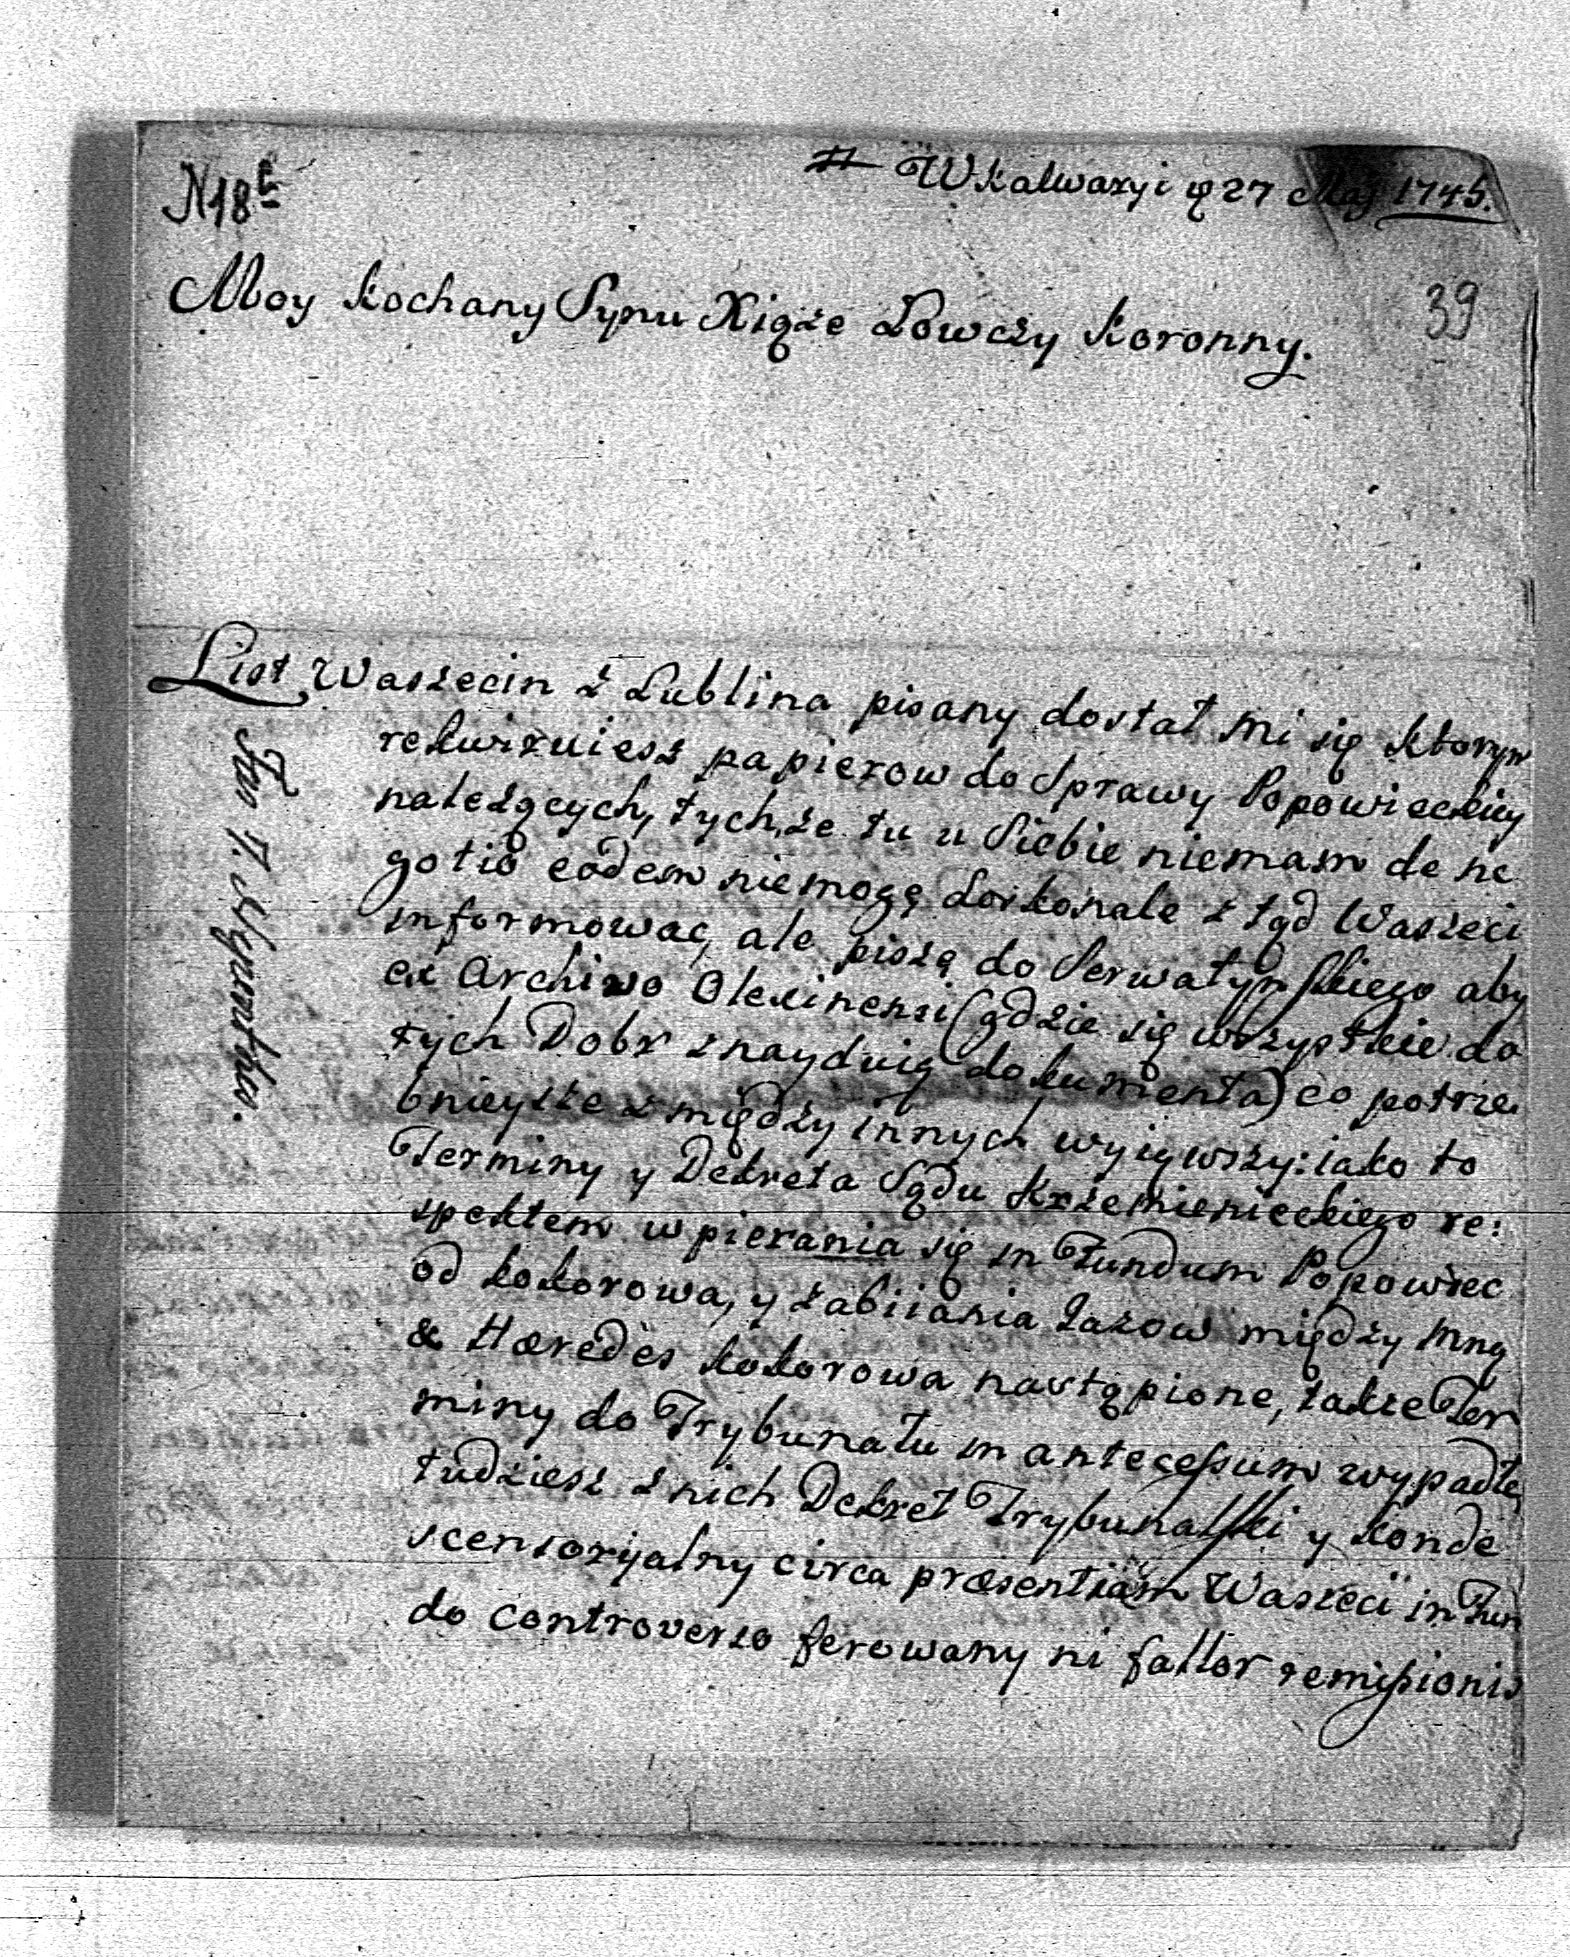 W Kalwaryi 27 Maj 1745.
N 18
39
Moy Kochany Synu Xiąże Łowczy Koronny.
List Waszecin z Lublina pisany dostał mi się ktorym
rekwiruiesz papierow do Sprawy Popowieckiey
należących, tych, że tu u Siebie niemam de ne
gotio eodem niemogę doskonale z tąd Waszeci
informować, ale piszę do Serwatyńskiego aby
ex Archivo Olexinensi (gdzie się wszystkie do
tych Dobr znayduią dokumenta) co potrze
bnieysze z między innych wyiąwszy: iako to
Terminy y Dekreta Sądu Krzemienieckiego re:
spektem wpierania się in Fundum Popowiec
od Kokorowa, y zabiiania Łazow między mną
& Hæredes Kokorowa nastąpione, także Ter
miny do Trybunału in antecessum wypadłe,
tudziesz z nich Dekret Trybunalski y Konde
scensoryalny circa præsentiam Waszeci in Fun
do controverso ferowany ni fallor remissionis